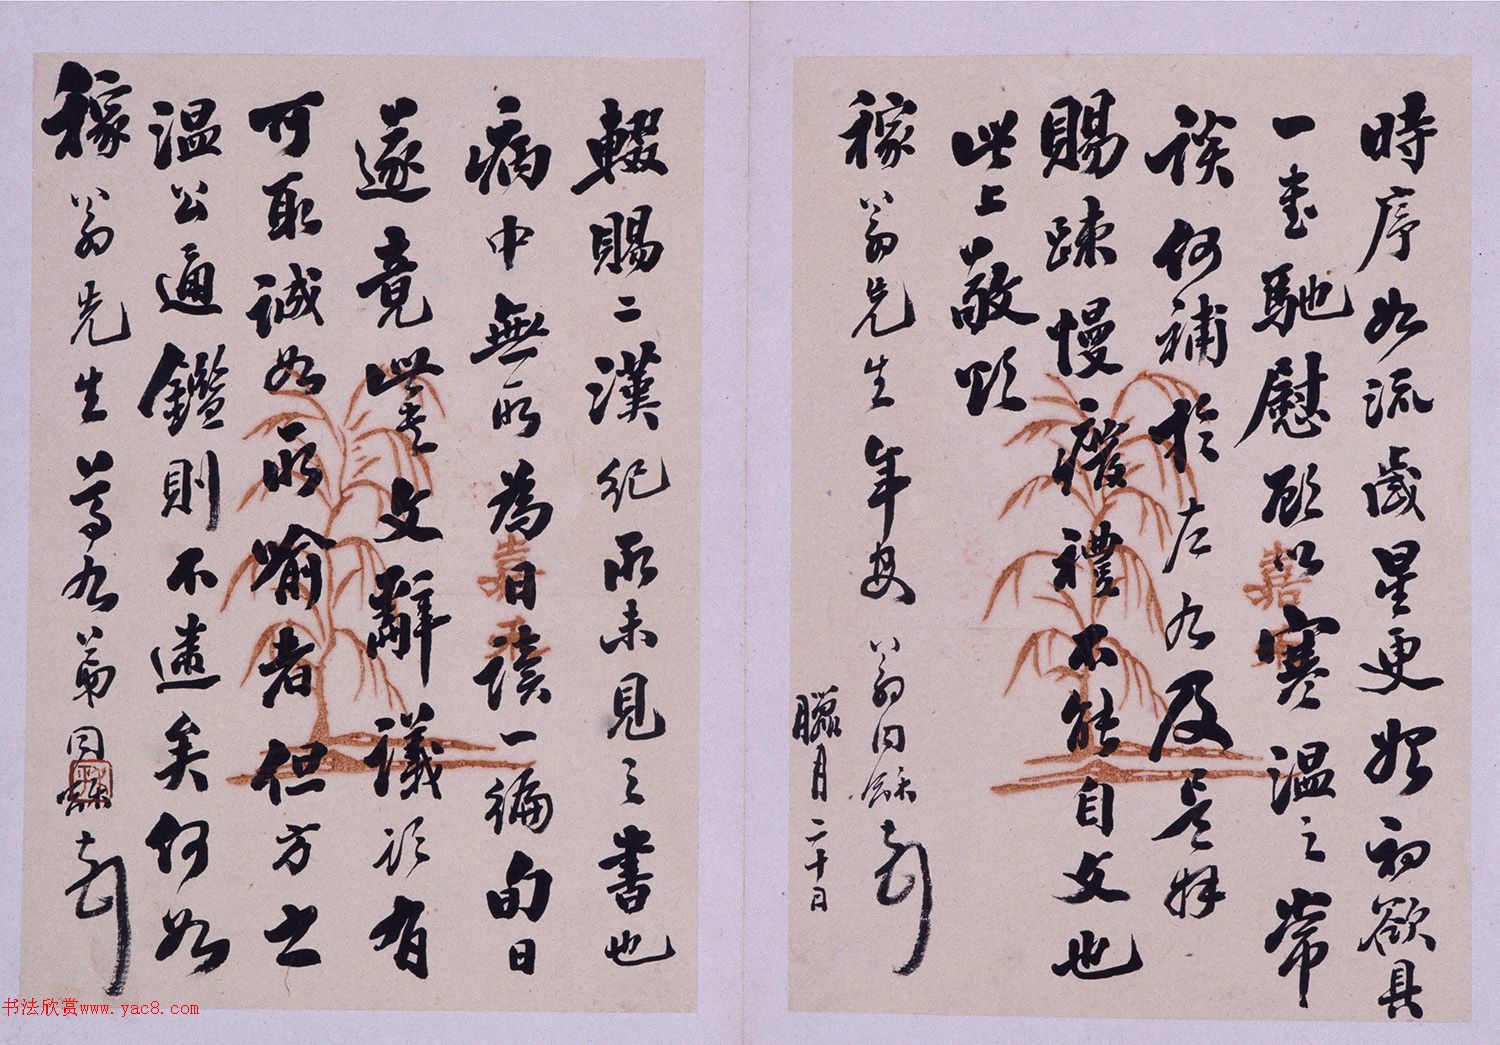 時序如流歲星更始初欲具
一書馳慰顧以寒溫之常
談何補於左右及拜
賜疎慢廢禮不能自文也
此上敬頌
稼翁先生年安 翁同龢頓首
臘月二十日
輟賜二漢紀所未見之書也
病中無所為日讀一編旬日
遂竟此老文辭議論有
可取誠如所喻者但方之
溫公通鑑則不逮矣何如
稼翁先生尊右 弟同龢頓首
嘉
嘉
书法欣赏www.yac8.com